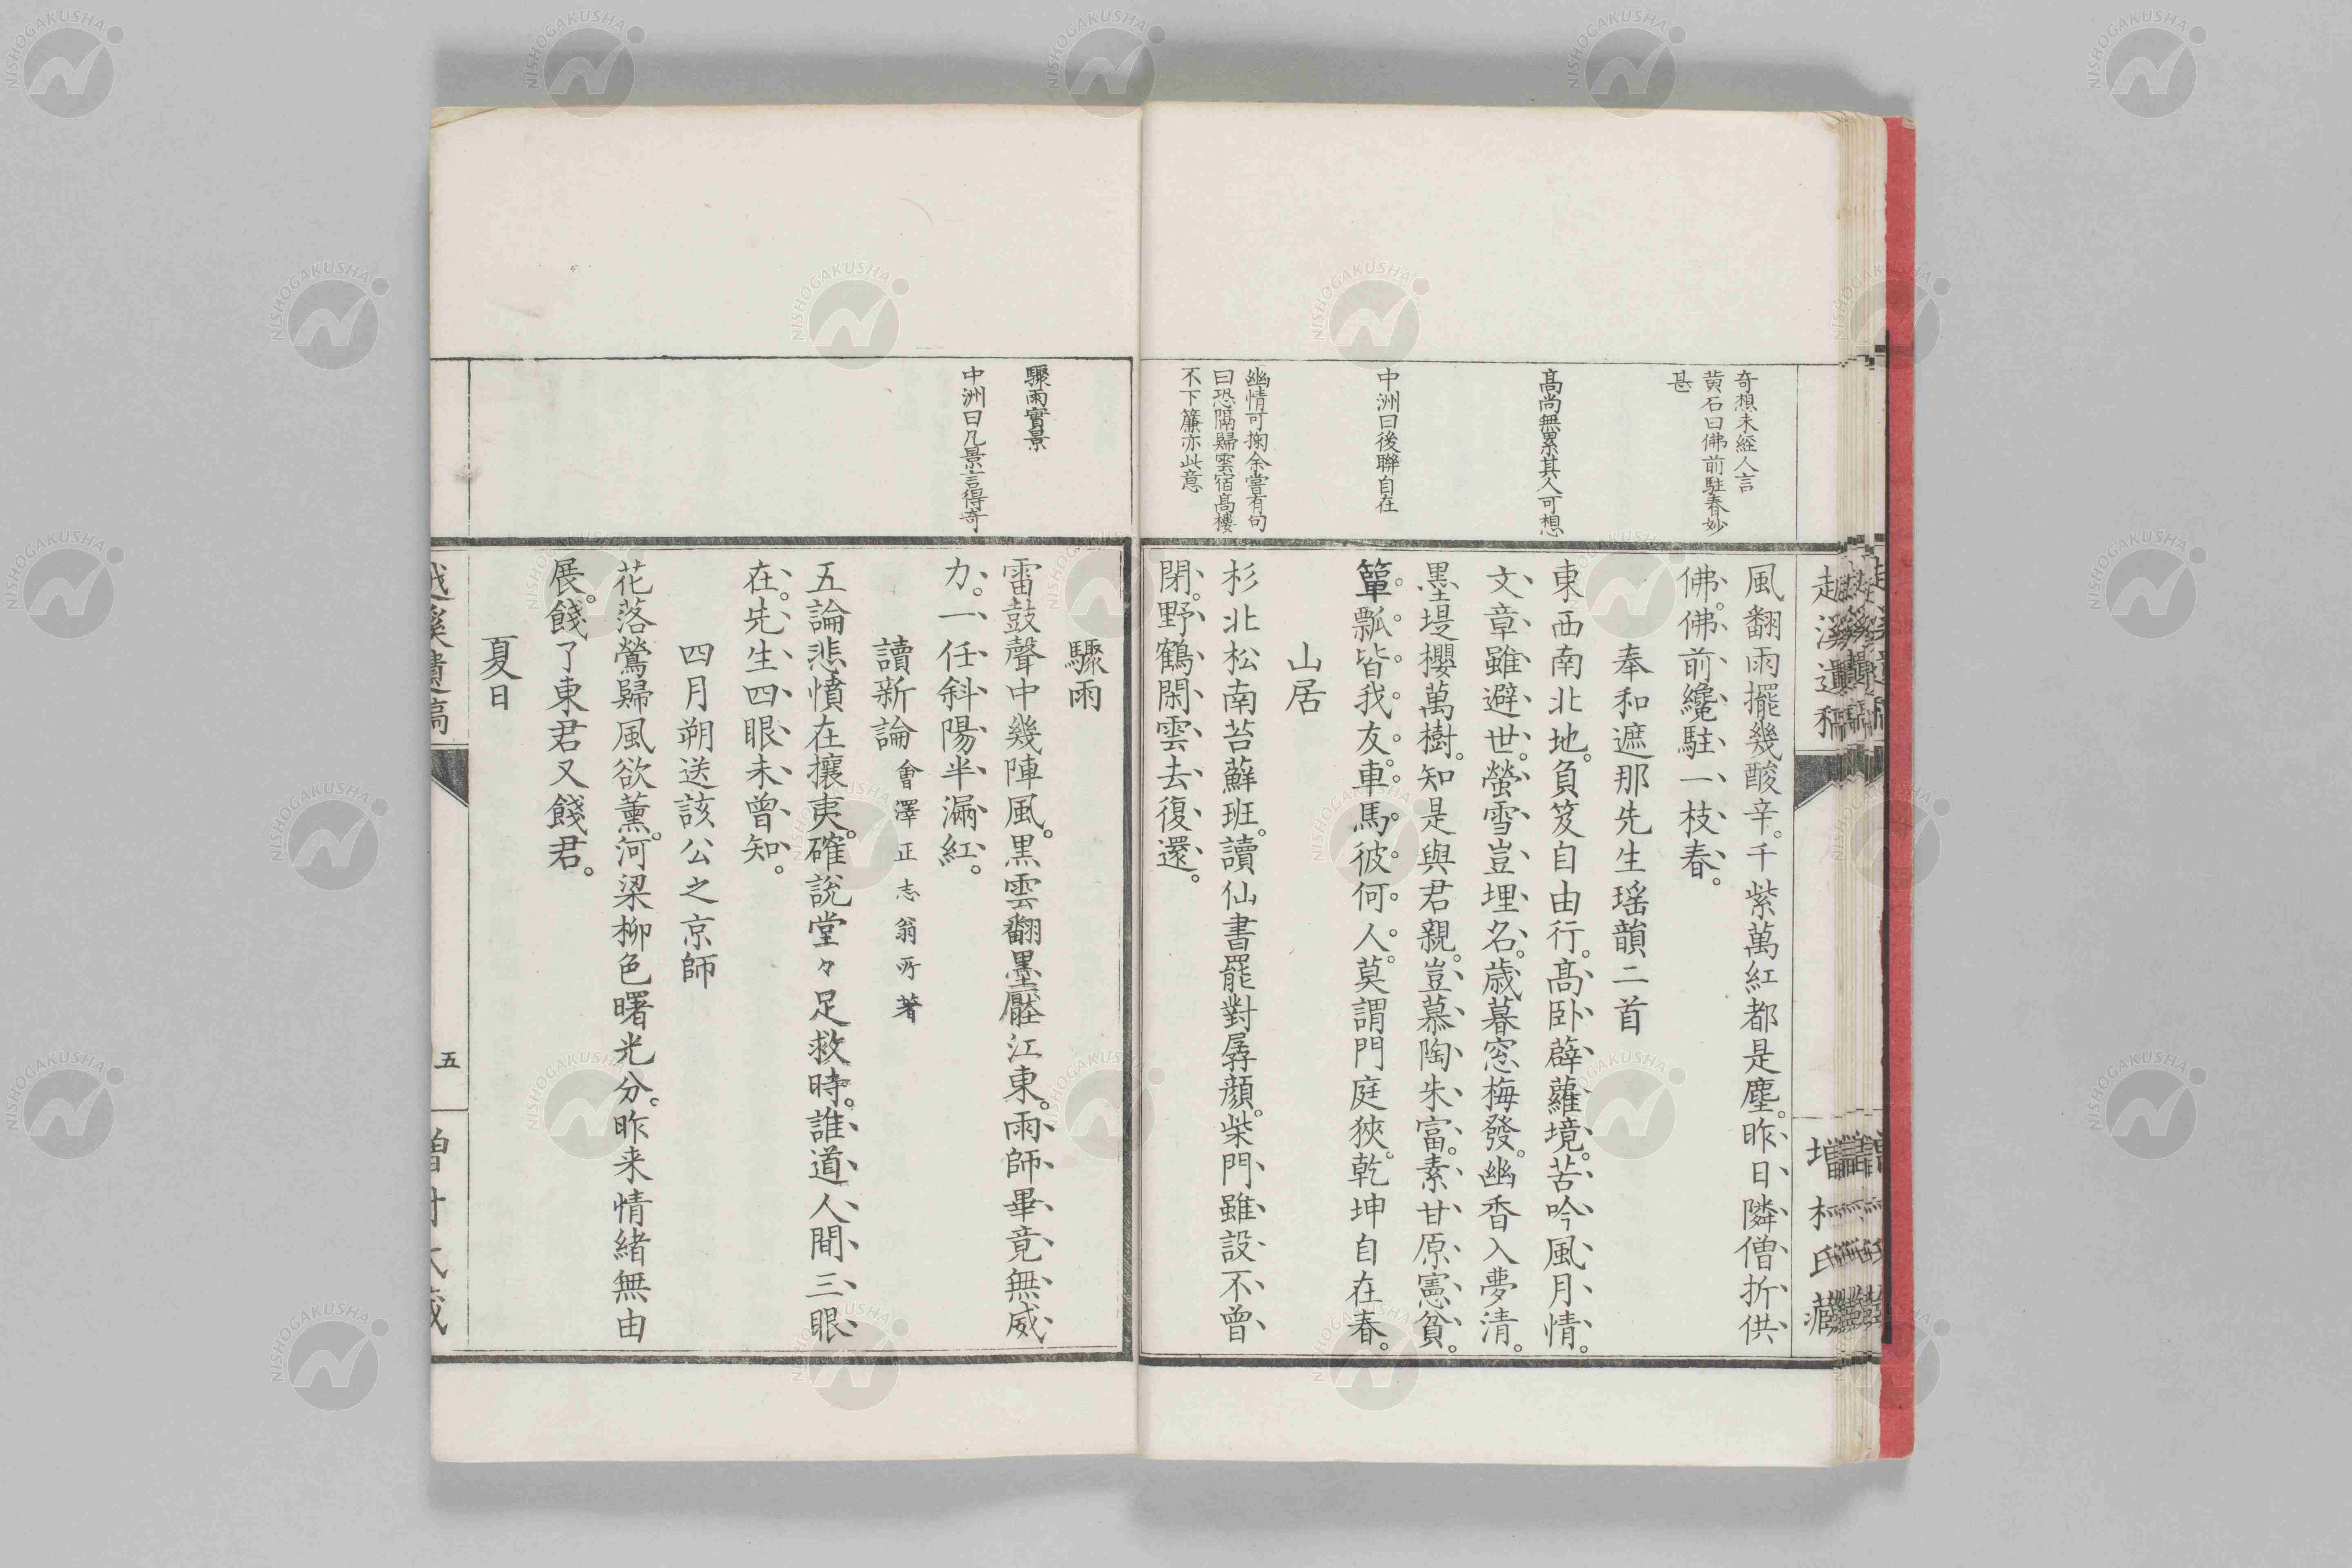 奇想未經人言
黄石曰佛前駐春妙
甚
高尚無累其人可想
中洲曰後聯自在
幽情可掬余嘗有句
曰恐隔歸雲宿高樓
不下簾亦此意
風翻雨擺幾酸辛。千紫萬紅都是塵。昨日隣僧折供
佛。佛前纔駐一枝春。
奉和遮那先生瑶韻二首
東西南北地。負笈自由行。高卧薜蘿境。苦吟風月情。
文章雖避世。螢雪豈埋名。歳暮窓梅發。幽香入夢清。
墨堤櫻萬樹。知是與君親。豈慕陶朱富。素甘原憲貧。
簞瓢皆我友。車馬彼何人。莫謂門庭狹。乾坤自在春。
山居
杉北松南苔蘚班。讀仙書罷對孱顔。柴門雖設不曾
閉。野鶴閑雲去復還。
驟雨實景
中洲曰凡景言得奇
驟雨
雷鼓聲中幾陣風。黒雲翻墨壓江東。雨師畢竟無威
力。一任斜陽半漏紅。
讀新論 會澤正志翁所著
五論悲憤在攘夷。確説堂々足救時。誰道人間三眼
在。先生四眼未曾知。
四月朔送該公之京師
花落鶯歸風欲薫。河梁柳色曙光分。昨来情緒無由
展。餞了東君又餞君。
夏日
越溪遺稿
五
NISHOGAKUSHA